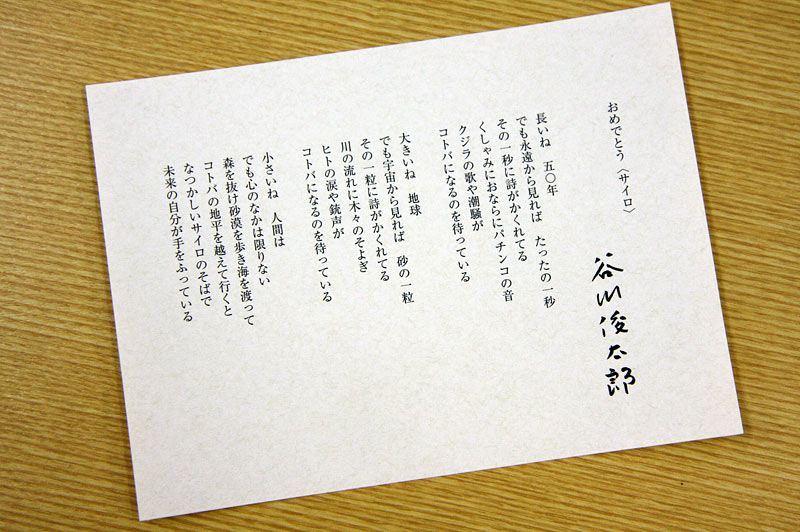 おめでとう〈サイロ〉
谷川俊太郎
長いね　五〇年
でも永遠から見れば　たったの一秒
その一秒に詩がかくれてる
くしゃみにおならにパチンコの音
クジラの歌や潮騒が
コトバになるのを待っている
大きいね　地球
でも宇宙から見れば　砂の一粒
その一粒に詩がかくれてる
川の流れに木々のそよぎ
ヒトの涙や銃声が
コトバになるのを待っている
小さいね　人間は
でも心のなかは限りない
森を抜け砂漠を歩き海を渡って
コトバの地平を越えて行くと
なつかしいサイロのそばで
未来の自分が手をふっている